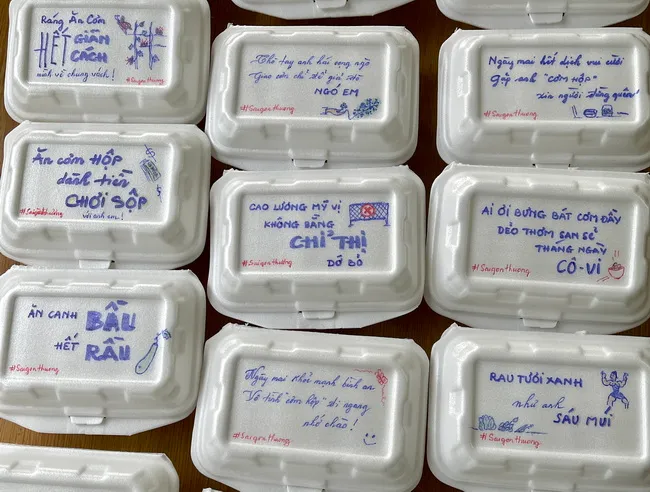 Ráng Ăn Cơm
HẾT GIÃN
CÁCH
mình về chung vách!
#Saigonthuong
Thò tay anh hái cọng ngò
Giao cơm chỉ để giả đò
NGÓ EM
#Saigonthuong
Ngày mai hết dịch vui cười
Gặp anh "CƠM HỘP"
xin người đừng quên!
#Saigonthuong
Ăn cơm HỘP
dành tiền
CHƠI SỘP
với anh em!
#Saigonthương
CAO LƯƠNG MỸ VỊ
KHÔNG BẰNG
CHỈ THỊ
DỠ BỎ
#Saigonthương
AI ƠI BƯNG BÁT CƠM ĐẦY
DẺO THƠM SAN SẺ
THÁNG NGÀY
CÔ-VI
#Saigonthuong
ĂN CANH BẦU
HẾT RẦU
#Saigonthuong
Ngày mai khỏe mạnh bình an
Vô tình "cơm hộp" đi ngang
nhớ chào!
#Saigonthuong
RAU TƯƠI XANH
như anh
SÁU MÚI
#Saigonthuong